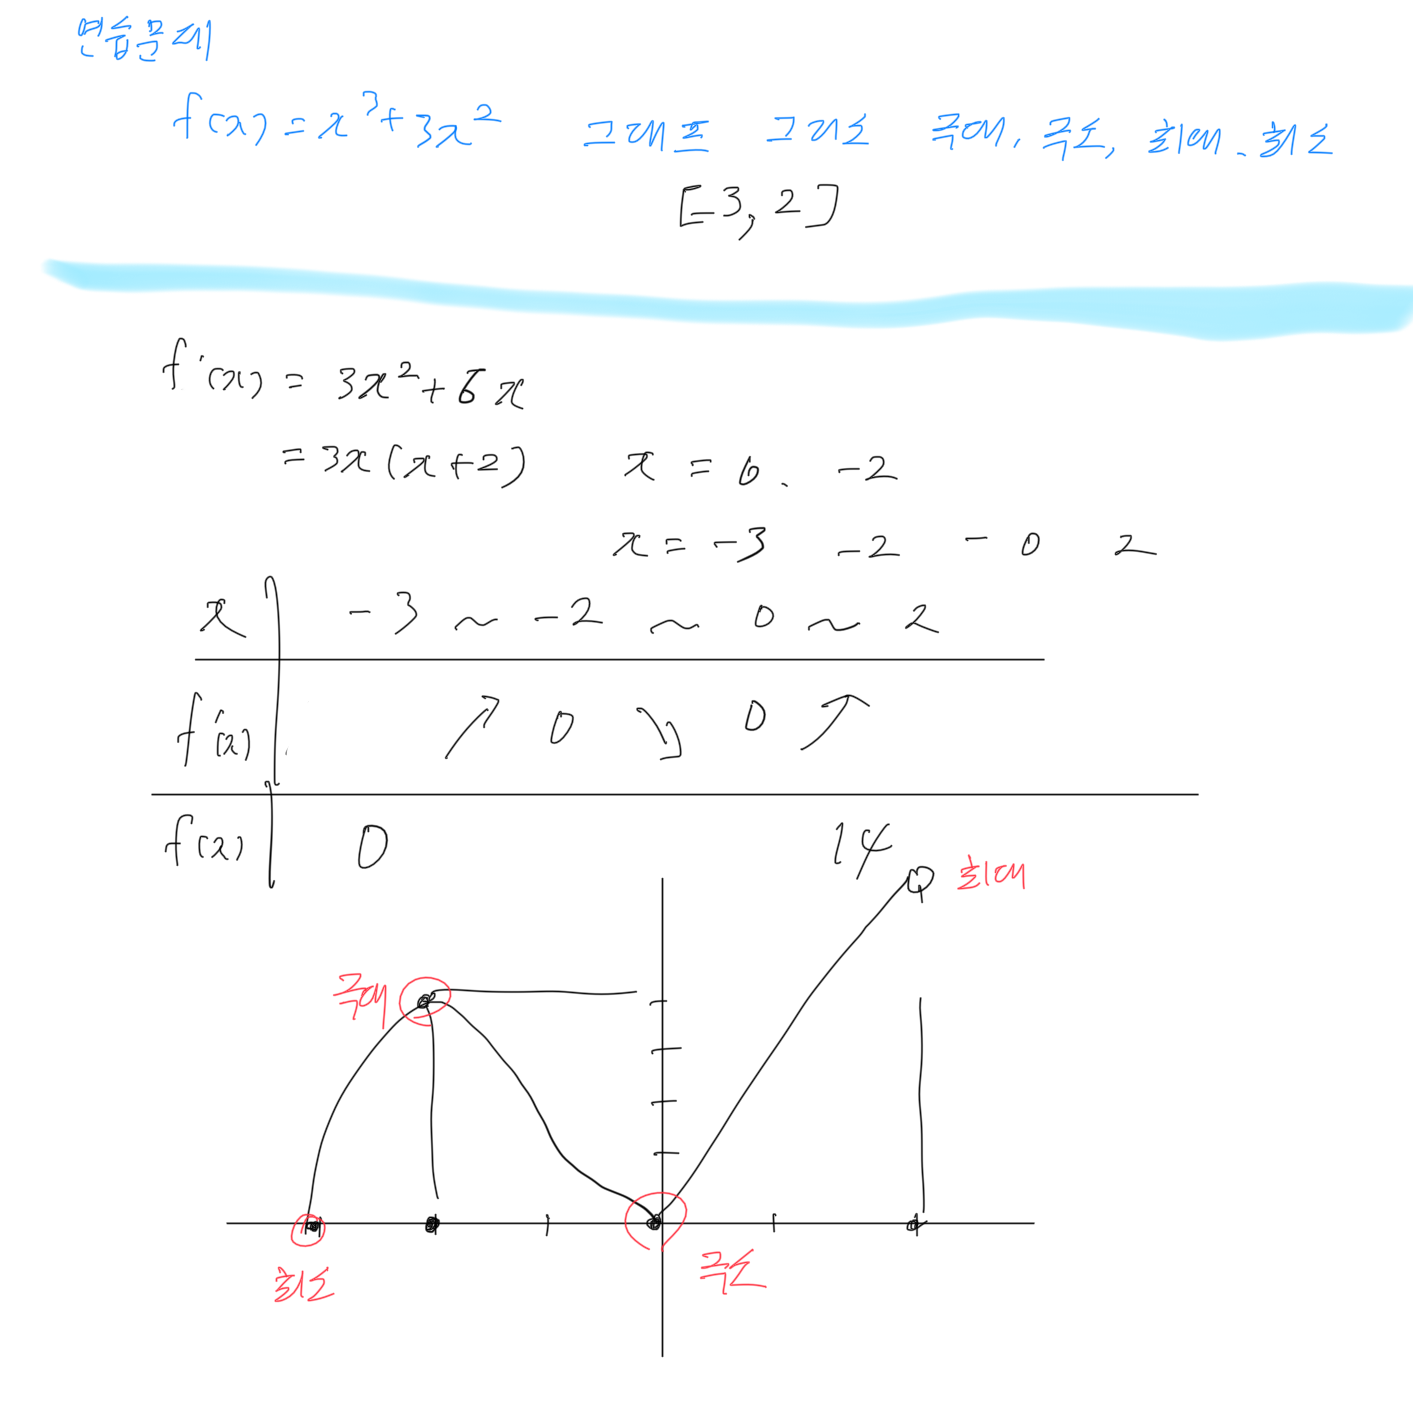 연습문제
f(x) = x³+3x² 그래프 그리소 극대, 극소, 최대, 최소
[-3, 2]
f'(x) = 3x²+6x
= 3x(x+2) x = 0, -2
x = -3 -2 - 0 2
x -3 ~ -2 ~ 0 ~ 2
f'(x) ↗ 0 ↘ 0 ↗
f(x) 0 14
최대
극대
극소
최소